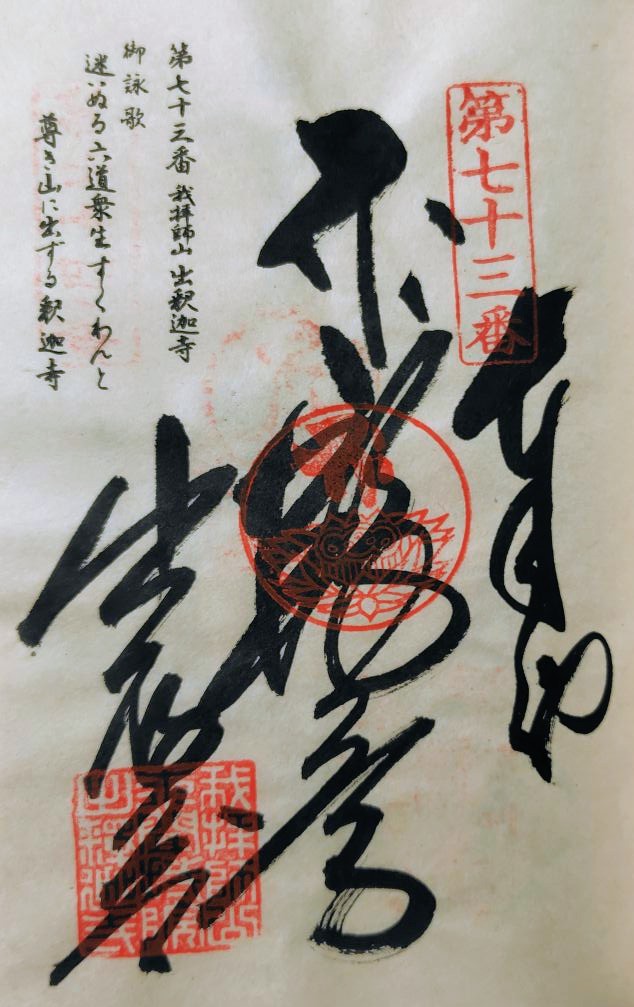 第七十三番
出釈迦寺
我拝師山
求聞持院
出釋迦寺
第七十三番 我拝師山 出釈迦寺
御詠歌
迷いぬる六道衆生すくわんと
尊き山に出ずる釈迦寺